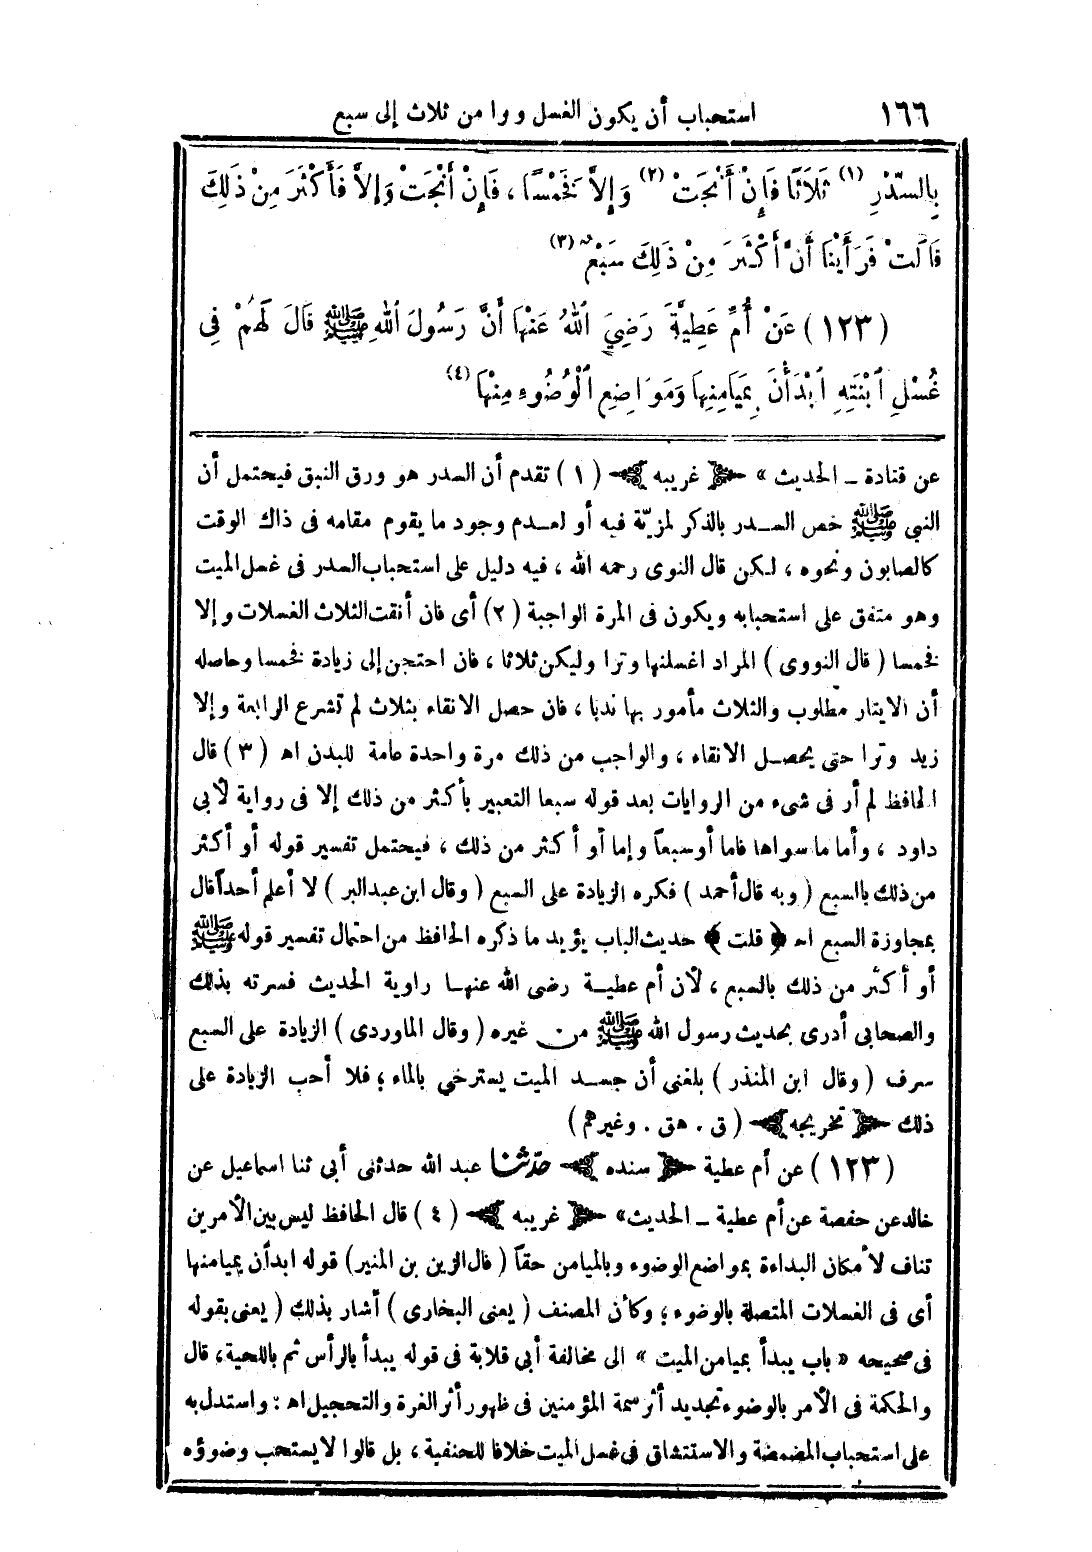 ١٦٦ استحباب أن يكون الغسل و وا من ثلاث إلى سبع
بِالسِّدْرِ (١) ثَلَاثًا فَإِنْ أَنْجَتْ (٢) وَإِلاَّ فَخَمْسًا ، فَإِنْ أَنْجَتْ وَإِلاَّ فَأَكْثَرَ مِنْ ذَلِكَ
قَالَتْ فَرَأَيْنَا أَنَّ أَكْثَرَ مِنْ ذَلِكَ سَبْعٌ (٣)
(١٢٣) عَنْ أُمِّ عَطِيَّةَ رَضِيَ اللهُ عَنْهَا أَنَّ رَسُولَ اللهِ ﷺ قَالَ لَهُمْ فِى
غُسْلِ ابْنَتِهِ ابْدَأْنَ بِمَيَامِنِهَا وَمَوَاضِعِ الْوُضُوءِ مِنْهَا (٤)
عن قتادة ـ الحديث » ﴿ غريبه ﴾ (١) تقدم أن السدر هو ورق النبق فيحتمل أن
النبى ﷺ خص السدر بالذكر لمزيّة فيه أو لعدم وجود ما يقوم مقامه فى ذاك الوقت
كالصابون ونحوه ، لكن قال النوى رحمه الله ، فيه دليل على استحباب السدر فى غسل الميت
وهو متفق على استحبابه ويكون فى المرة الواجبة (٢) أى فان أنقت الثلاث الغسلات وإلا
فخمسا ( قال النووى ) المراد اغسلنها وترا وليكن ثلاثا ، فان احتجن إلى زيادة فخمسا وحاصله
أن الايتار مطلوب والثلاث مأمور بها ندبا ، فان حصل الانقاء بثلاث لم تشرع الرابعة وإلا
زيد وترا حتى يحصل الانقاء ، والواجب من ذلك مرة واحدة عامة للبدن اه (٣) قال
الحافظ لم أر فى شىء من الروايات بعد قوله سبعا التعبير بأكثر من ذلك إلا فى رواية لأبى
داود ، وأما ما سواها فاما أوسبعاً وإما أو أكثر من ذلك ، فيحتمل تفسير قوله أو أكثر
من ذلك بالسبع ( وبه قال أحمد ) فكره الزيادة على السبع ( وقال ابن عبد البر ) لا أعلم أحداً قال
بمجاوزة السبع اه ﴿ قلت ﴾ حديث الباب يؤيد ما ذكره الحافظ من احتمال تفسير قوله ﷺ
أو أكثر من ذلك بالسبع ، لأن أم عطية رضى الله عنها راوية الحديث فسرته بذلك
والصحابى أدرى بحديث رسول الله ﷺ من غيره ( وقال الماوردى ) الزيادة على السبع
سرف ( وقال ابن المنذر ) بلغنى أن جسد الميت يسترخي بالماء ؛ فلا أحب الزيادة على
ذلك ﴿ تخريجه ﴾ ( ق . هق . وغيرهم )
(١٢٣) عن أم عطية ﴿ سنده ﴾ حدّثنا عبد الله حدثنى أبى ثنا اسماعيل عن
خالد عن حفصة عن أم عطية ـ الحديث » ﴿ غريبه ﴾ (٤) قال الحافظ ليس بين الأمرين
تناف لأمكان البداءة بمواضع الوضوء وبالميامن حقاً ( قال الزين بن المنير ) قوله ابدأن بميامنها
أى فى الغسلات المتصلة بالوضوء ؛ وكأن المصنف ( يعنى البخارى ) أشار بذلك ( يعنى بقوله
فى صحيحه « باب يبدأ بميامن الميت » الى مخالفة أبى قلابة فى قوله يبدأ بالرأس ثم باللحية ، قال
والحكمة فى الأمر بالوضوء تجديد أثر سمة المؤمنين فى ظهور أثر الغرة والتحجيل اه : واستدل به
على استحباب المضمضة والاستنشاق فى غسل الميت خلافا للحنفية ، بل قالوا لا يستحب وضوؤه